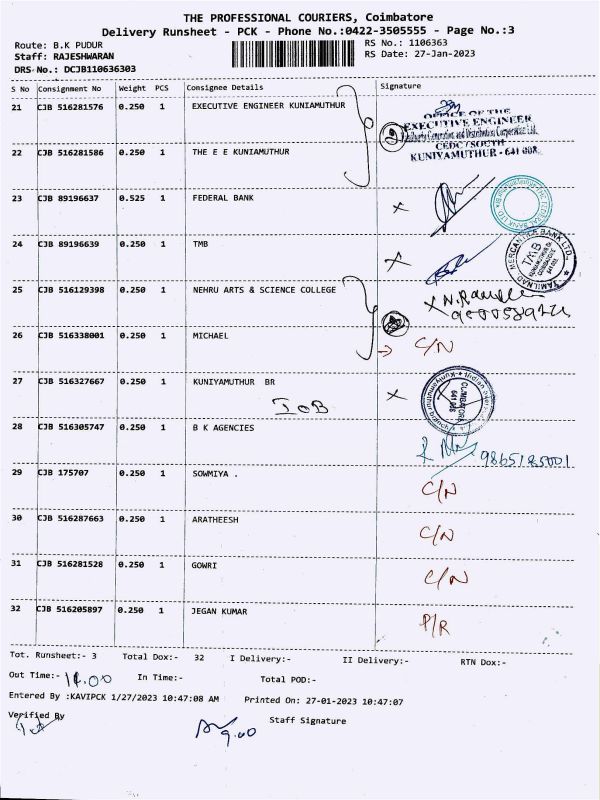 THE PROFESSIONAL COURIERS, Coimbatore
Delivery Runsheet - PCK - Phone No.:0422-3505555 - Page No.:3
Route: B.K PUDUR RS No.: 1106363
Staff: RAJESHWARAN RS Date: 27-Jan-2023
DRS No.: DCJB110636303
S No Consignment No Weight PCS Consignee Details Signature
21 CJB 516281576 0.250 1 EXECUTIVE ENGINEER KUNIAMUTHUR
OFFICE OF THE
EXECUTIVE ENGINEER
Generation and Distribution Corporation Ltd.
CEDC/SOUTH
KUNIYAMUTHUR - 641 008.
22 CJB 516281586 0.250 1 THE E E KUNIAMUTHUR
23 CJB 89196637 0.525 1 FEDERAL BANK X
24 CJB 89196639 0.250 1 TMB X
TAMILNAD MERCANTILE BANK LTD.
TMB
25 CJB 516129398 0.250 1 NEHRU ARTS & SCIENCE COLLEGE X
26 CJB 516338001 0.250 1 MICHAEL C/N
27 CJB 516327667 0.250 1 KUNIYAMUTHUR BR X
IOB
28 CJB 516305747 0.250 1 B K AGENCIES
29 CJB 175707 0.250 1 SOWMIYA . C/N
30 CJB 516287663 0.250 1 ARATHEESH C/N
31 CJB 516281528 0.250 1 GOWRI C/N
32 CJB 516205897 0.250 1 JEGAN KUMAR P/R
Tot. Runsheet:- 3 Total Dox:- 32 I Delivery:- II Delivery:- RTN Dox:-
Out Time:- In Time:- Total POD:-
Entered By :KAVIPCK 1/27/2023 10:47:08 AM Printed On: 27-01-2023 10:47:07
Verified By Staff Signature
9.00